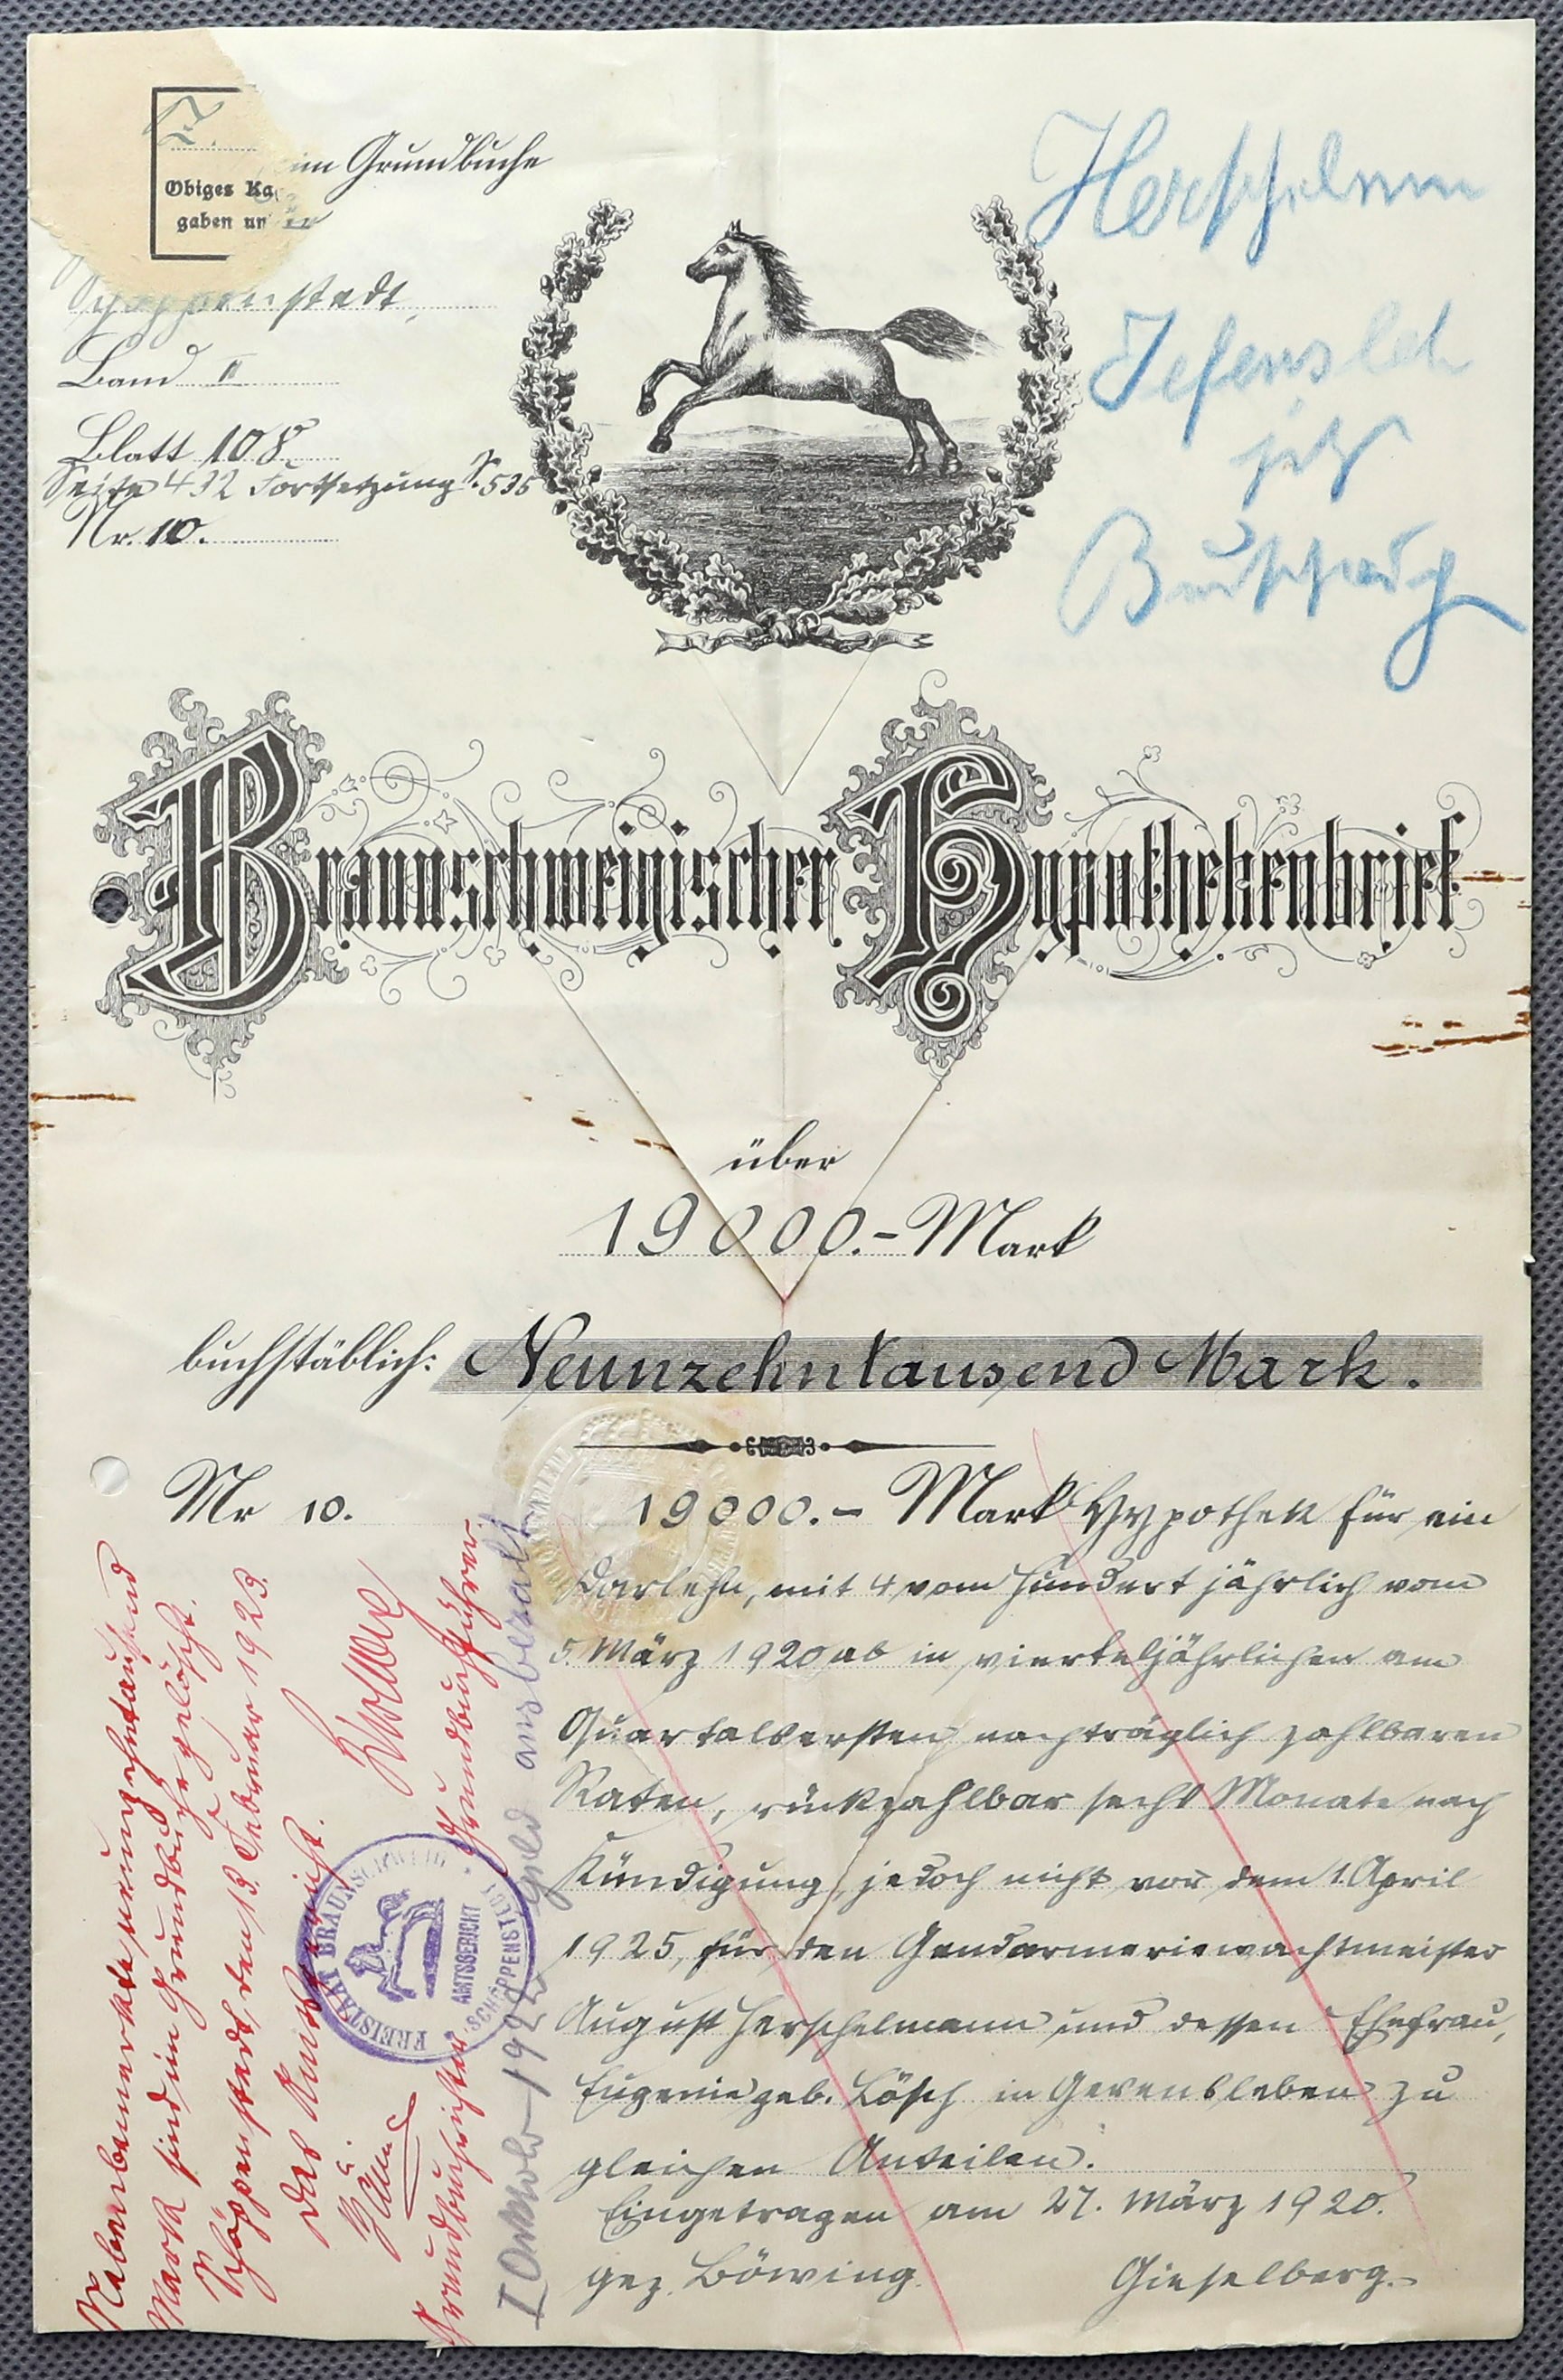 im Grundbuche
Obiges Ka
gaben un
Schöppenstedt,
Band II
Blatt 108
Seite 432 Fortsetzung S. 535
Nr. 10.
Herschelmann
jetzt
Braunschweigischer Hypothekenbrief
über
19000.- Mark
buchstäblich: Neunzehntausend Mark.
Nr 10.
19000.- Mark Hypothek für ein
Darlehn, mit 4 vom Hundert jährlich vom
5. März 1920 ab in vierteljährlichen am
Quartalsersten nachträglich zahlbaren
Raten, rückzahlbar sechs Monate nach
Kündigung, jedoch nicht vor dem 1. April
1925, für den Gendarmeriewachtmeister
August Herschelmann und dessen Ehefrau,
Eugenie geb. Lösch in Gevensleben zu
gleichen Anteilen.
Eingetragen am 27. März 1920.
gez. Böwing. Gieselberg.
Nebenbemerkte neunzehntausend
Mark sind im Grundbuche gelöscht.
Schöppenstedt, den 13. Februar 1923.
Das Amtsgericht.
Grundbuchrichter. Grundbuchführer.
FREISTAAT BRAUNSCHWEIG
AMTSGERICHT
SCHÖPPENSTEDT
1922 Geld ausbezalt